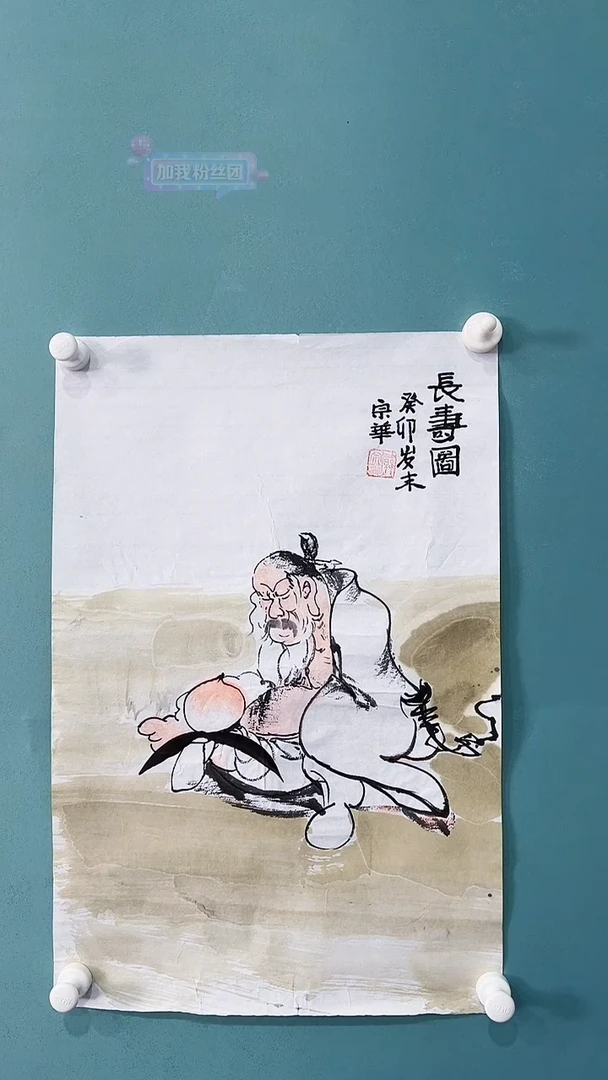 加我粉丝团
長壽圖
癸卯岁末
宗華